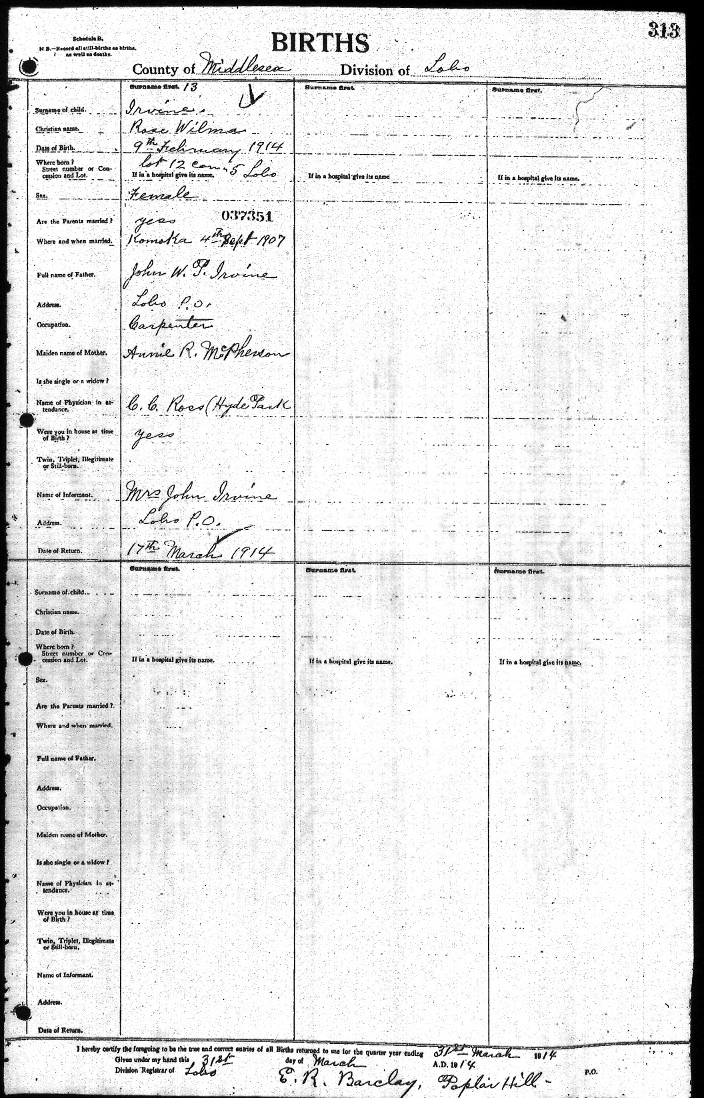 313
Schedule B.
N. B.—Record all still-births as births,
as well as deaths.
BIRTHS
County of Middlesex Division of Lobo
Surname first. 13 Surname first. Surname first.
Surname of child. Irvine.
Christian name. Rose Wilma
Date of Birth. 9th February 1914
Where born? lot 12 con 5 Lobo
Street number or Con-
cession and Lot. If in a hospital give its name. If in a hospital give its name If in a hospital give its name.
Sex. Female
Are the Parents married? yess 037351
Where and when married. Komoka 4th Sept 1907
Full name of Father. John W. P. Irvine
Address. Lobo P.O.
Occupation. Carpenter
Maiden name of Mother. Annie R. McPherson
Is she single or a widow?
Name of Physician in at-
tendance. C. C. Ross (Hyde Park
Were you in house at time
of Birth? yess
Twin, Triplet, Illegitimate
or Still-born.
Name of Informant. Mrs John Irvine
Address. Lobo P.O.
Date of Return. 17th March 1914
Surname first. Surname first. Surname first.
Surname of child.
Christian name.
Date of Birth.
Where born?
Street number or Con-
cession and Lot. If in a hospital give its name. If in a hospital give its name. If in a hospital give its name.
Sex.
Are the Parents married?
Where and when married.
Full name of Father.
Address.
Occupation.
Maiden name of Mother.
Is she single or a widow?
Name of Physician in at-
tendance.
Were you in house at time
of Birth?
Twin, Triplet, Illegitimate
or Still-born.
Name of Informant.
Address.
Date of Return.
I hereby certify the foregoing to be the true and correct entries of all Births returned to me for the quarter year ending 31st March 1914
Given under my hand this 31st day of March A.D. 1914.
Division Registrar of Lobo E. R. Barclay, Poplar Hill - P.O.